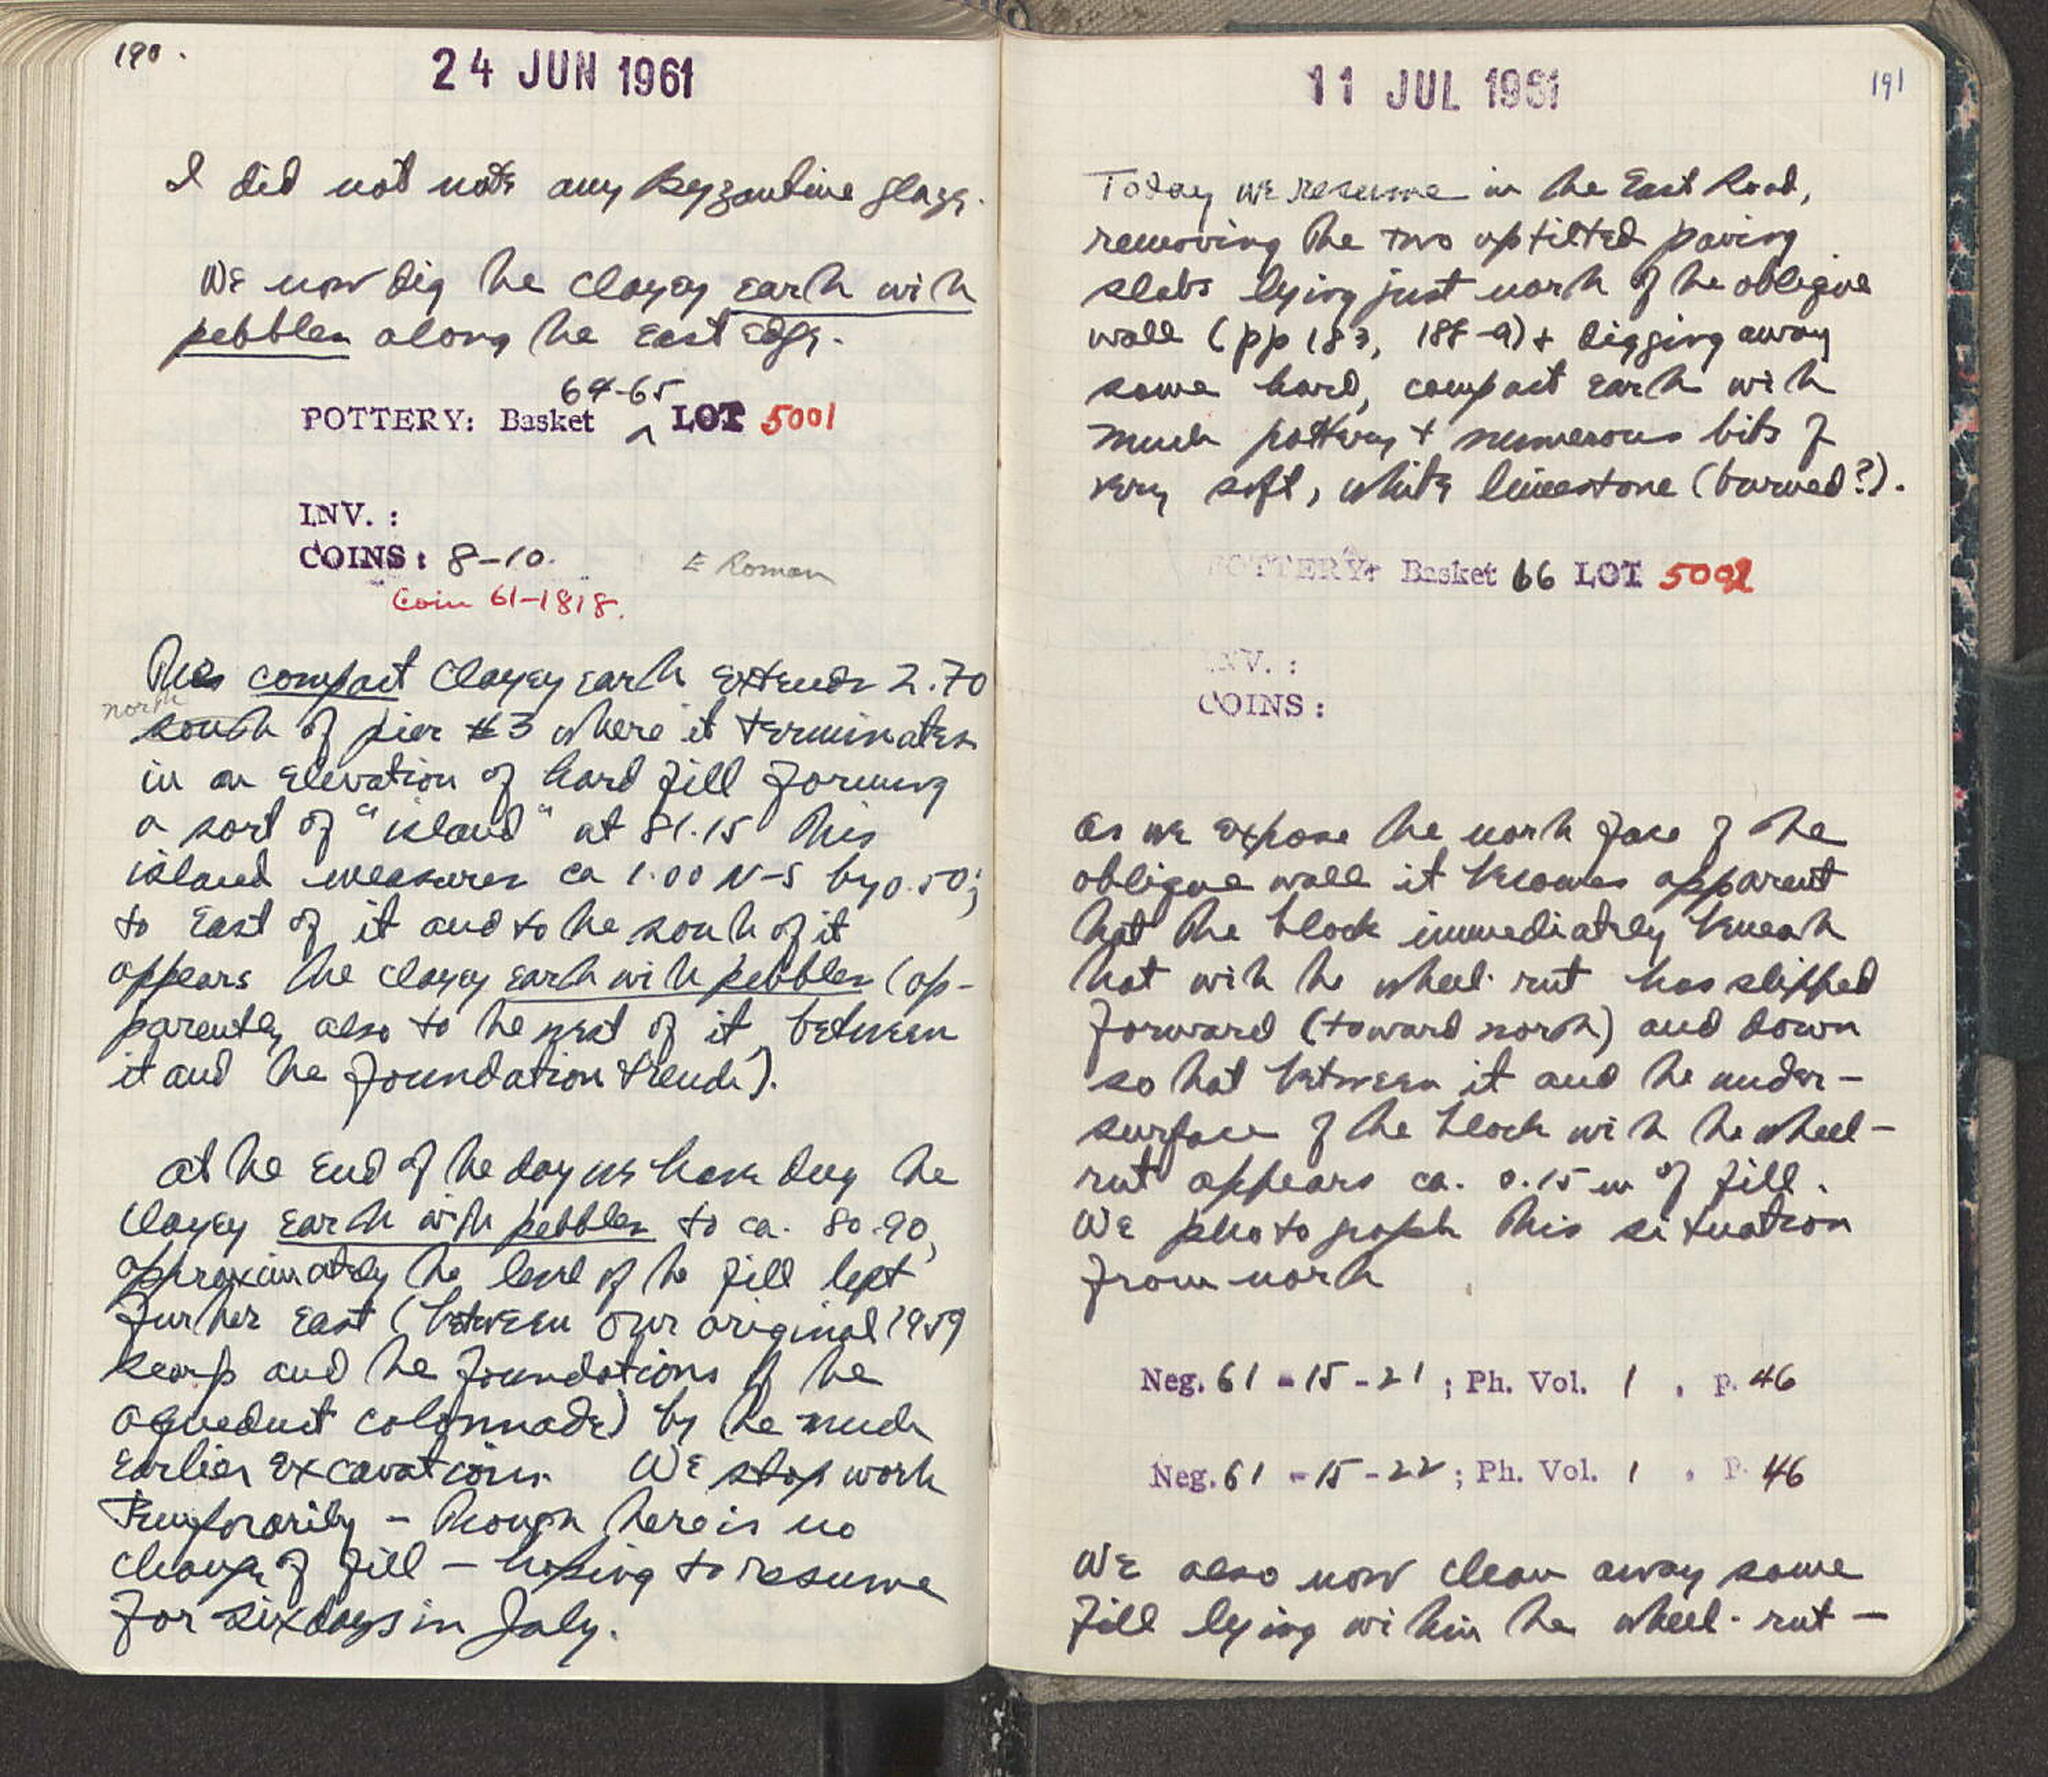 190.
24 JUN 1961
I did not note any Byzantine glaze.
We now dig the clayey earth with
pebbles along the East edge.
64-65
POTTERY: Basket ^ LOT 5001
INV. :
COINS: 8-10. E Roman
Coin 61-1818.
This compact clayey earth extends 2.70
north
south of pier #3 where it terminates
in an elevation of hard fill forming
a sort of "island" at 81.15 This
island measures ca 1.00 N-S by 0.50;
to East of it and to the south of it
appears the clayey earth with pebbles (ap-
parently also to the west of it, between
it and the foundation trench).
At the end of the day we have dug the
clayey earth with pebbles to ca. 80.90,
approximately the level of the fill left
further east (between our original 1959
scarp and the foundations of the
aqueduct colonnade) by the much
earlier excavations. We stop work
temporarily - though there is no
change of fill - hoping to resume
for six days in July.
11 JUL 1961
191
Today we resume in the East Road,
removing the two uptilted paving
slabs lying just north of the oblique
wall (pp 183, 188-9) + digging away
some hard, compact earth with
much pottery + numerous bits of
very soft, white limestone (burned?).
POTTERY: Basket 66 LOT 5002
INV. :
COINS :
As we expose the north face of the
oblique wall it becomes apparent
that the block immediately beneath
that with the wheel-rut has slipped
forward (toward north) and down
so that between it and the under-
surface of the block with the wheel-
rut appears ca. 0.15 m of fill.
We photograph this situation
from north
Neg. 61 - 15 - 21 ; Ph. Vol. 1 , p. 46
Neg. 61 - 15 - 22 ; Ph. Vol. 1 , p. 46
We also now clean away some
fill lying within the wheel-rut -